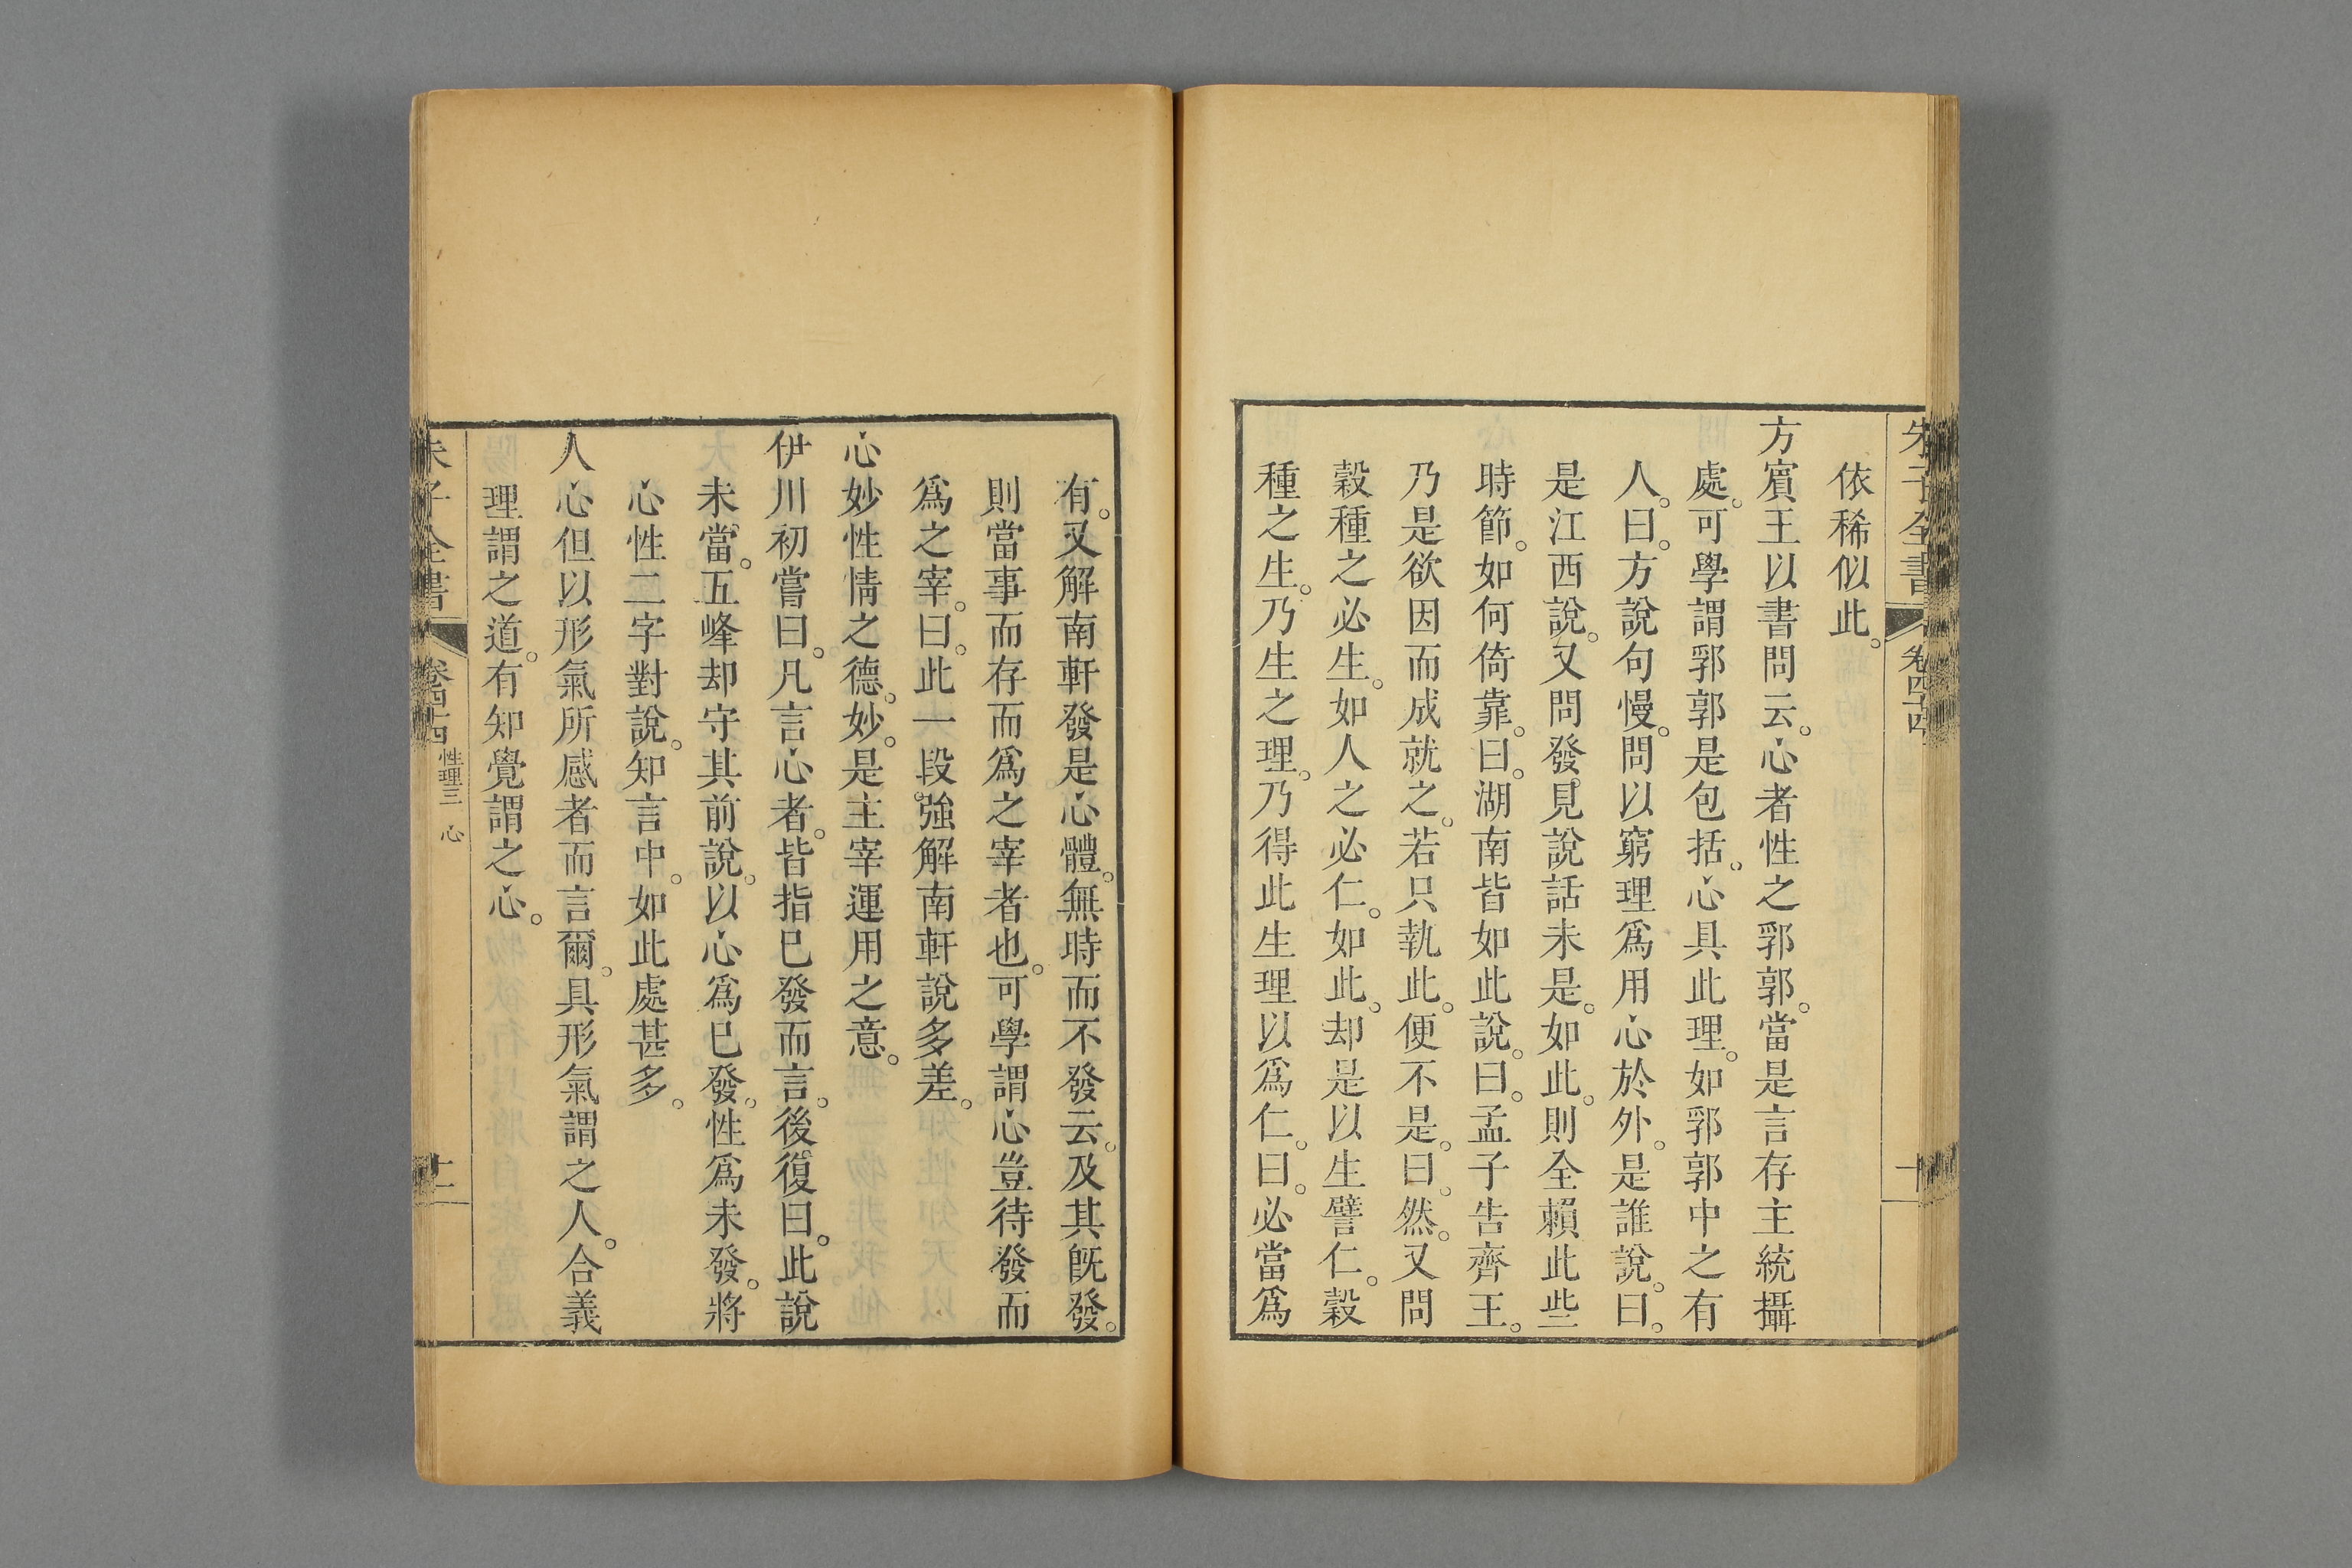 朱子全書 卷四十四 十
依稀似此。
方賔王以書問云。心者性之郛郭。當是言存主統攝
處。可學謂郛郭是包括。心具此理。如郛郭中之有
人。曰。方說句慢。問以窮理爲用心於外。是誰說。曰。
是江西說。又問發見說話未是。如此。則全賴此些
時節。如何倚靠。曰。湖南皆如此說。曰。孟子告齊王。
乃是欲因而成就之。若只執此。便不是。曰。然。又問
穀種之必生。如人之必仁。如此。却是以生譬仁。穀
種之生。乃生之理。乃得此生理以爲仁。曰。必當爲
有。又解南軒發是心體。無時而不發云。及其旣發。
則當事而存而爲之宰者也。可學謂心豈待發而
爲之宰。曰。此一段。強解南軒說多差。
心妙性情之德。妙。是主宰運用之意。
伊川初嘗曰。凡言心者。皆指已發而言。後復曰。此說
未當。五峰却守其前說。以心爲已發。性爲未發。將
心性二字對說。知言中。如此處甚多。
人心但以形氣所感者而言爾。具形氣謂之人。合義
理謂之道。有知覺謂之心。
朱子全書 卷四十四 性理三 心